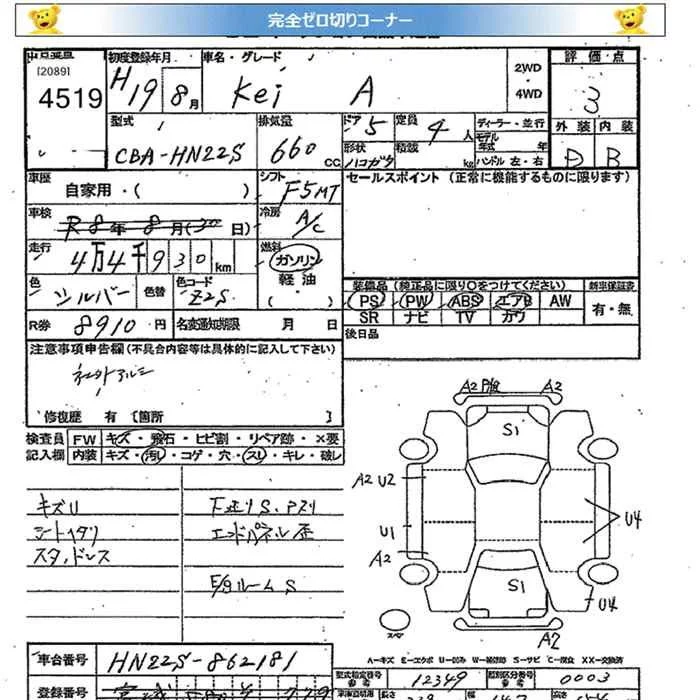 完全ゼロ切りコーナー
[2089]
4519
初度登録年月
H19 8月
車名・グレード
Kei A
2WD
・
4WD
評価・点
3
型式
CBA-HN22S
排気量
660 CC
ドア 5
定員 4 人
形状 ハコガタ
積載 kg
ディーラー・並行
モデル年式 年式
ハンドル 左・右
外装 内装
D B
車歴
自家用・( )
シフト
F5MT
セールスポイント (正常に機能するものに限ります)
車検
R8年8月(30日)
冷房
A/C
走行
4万4千930km
燃料
ガソリン
軽油
( )
色
シルバー
色替
色コード
Z2S
装備品 (純正品に限り○をつけてください)
新車保証書
PS PW ABS エアB AW
SR ナビ TV カワ
有・無
R券 8910円
名変通知期限 月 日
後日品
注意事項申告欄(不具合内容等は具体的に記入して下さい)
社外アルミ
修復歴 有 [箇所 ]
検査員 FW キズ・飛石・ヒビ割・リペア跡・×要
記入欄 内装 キズ・汚れ・コゲ・穴・スレ・キレ・破レ
キズU
シートヘタリ
スタッドレス
下廻りS、Pスリ
エンドパネル歪
E/gルームS
A2 A2
S1
A2 U2
U1
A2
U4
S1
U4
A2
スペア
A-キズ E-エクボ U-凹み W-補修跡 S-サビ C-腐食 XX-交換済
車台番号 HN22S-862181
型式指定番号 12349
類別区分番号 0003
登録番号
長さ
幅